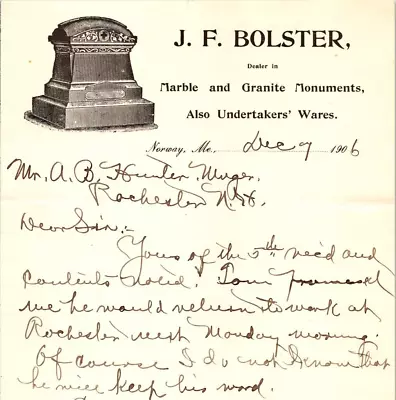 J. F. BOLSTER,
Dealer in
Marble and Granite Monuments,
Also Undertakers' Wares.
Norway, Me. Dec 7 1906
Mr. A. B. Hunter, Mngr.
Rochester N.H.
Dear Sir:-
Yours of the 5th rec'd and
contents noted. Tom promised
me he would return to work at
Rochester next Monday morning.
Of course I do not know that
he will keep his word.